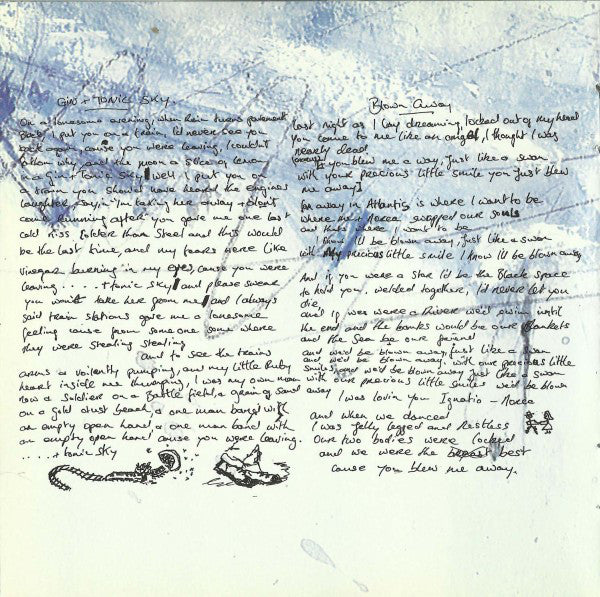 GIN + TONIC SKY.
On a lonesome evening, when Rain turns pavement
Back, I put you on a train, I'd never see you
back again, cause you were leaving, I couldn't
fathom why, and the moon a slice of lemon
in a Gin + Tonic Sky, well I put you on
a train you should have heard the engines
laughter say, I'm taking her away + don't
come running after you gave me one last
cold kiss colder than Steel and this would
be the last time, and my tears were like
vinegar burning in my eyes, cause you were
leaving..... + tonic sky and please swear
you won't take her from me, and I always
said train stations gave me a lonesome
feeling cause from someone some where
they were stealing stealing
and to see the trains
arms a violently pumping, and my little Ruby
heart inside me thumping, I was my own man
now a Soldier on a Battle field, a grain of sand
on a gold dust beach, a one man band with
an empty open hand, a one man band with
an empty open hand cause you were leaving.
..... + tonic sky
Blown Away
Last night as I lay dreaming, locked out of my head
you came to me like an angel, I thought I was
nearly dead
(chorus) you blew me a way, Just like a swan
with your precious little smile you Just blew
me away]
far away in Atlantis is where I want to be
where me + Norea swapped our souls
and thats where I want to be
I'd be blown away, just like a swan
with precious little smile I know I'd be blown away
And if you were a Star I'd be the Black space
to hold you, welded together, I'd never let you
die,
and if was were a River we'd swim until
the end and the banks would be our Blankets
and the Sea be our friend
and we'd be blown away, just like a swan
and we'd be blown away, with our precious little
smiles, and we'd be blown away Just like a swan
with our precious little smiles we'd be blown
away I was lovin you Ignatio - Norea
and when we danced
I was Jelly legged and Restless
Our two bodies were locked
and we were the best
cause you blew me away.